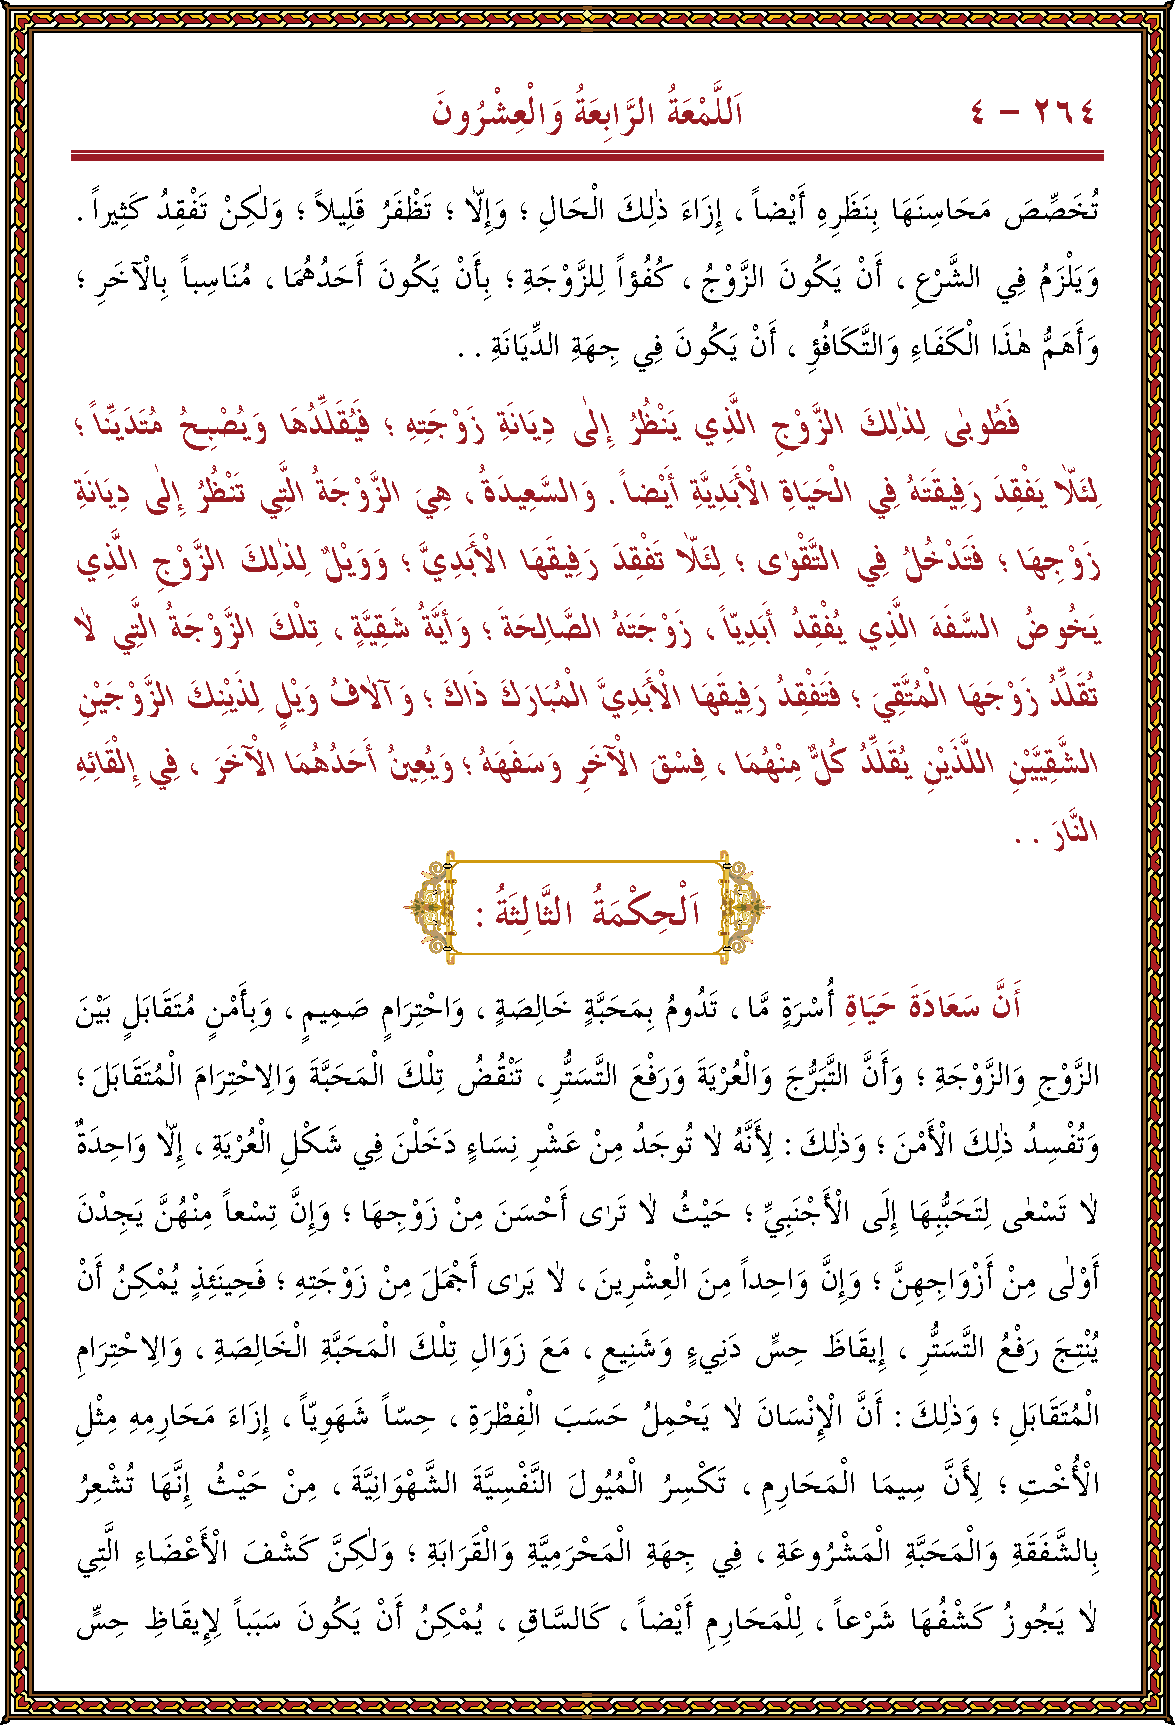 ٢٦٤ - ٤ اَللَّمْعَةُ الرَّابِعَةُ وَالْعِشْرُونَ
تُخَصِّصَ مَحَاسِنَهَا بِنَظَرِهِ أَيْضاً ، إِزَاءَ ذٰلِكَ الْحَالِ ؛ وَإِلاّٰ ؛ تَظْفَرُ قَلِيلاً ؛ وَلٰكِنْ تَفْقِدُ كَثِيراً .
وَيَلْزَمُ فِي الشَّرْعِ ، أَنْ يَكُونَ الزَّوْجُ ، كُفُؤاً لِلزَّوْجَةِ ؛ بِأَنْ يَكُونَ أَحَدُهُمَا ، مُنَاسِباً بِالْآخَرِ ؛
وَأَهَمُّ هٰذَا الْكَفَاءِ وَالتَّكَافُؤِ ، أَنْ يَكُونَ فِي جِهَةِ الدِّيَانَةِ . .
فَطُوبٰى لِذٰلِكَ الزَّوْجِ الَّذِي يَنْظُرُ إِلٰى دِيَانَةِ زَوْجَتِهِ ؛ فَيُقَلِّدُهَا وَيُصْبِحُ مُتَدَيِّناً ؛
لِئَلاّٰ يَفْقِدَ رَفِيقَتَهُ فِي الْحَيَاةِ الْأَبَدِيَّةِ أَيْضاً . وَالسَّعِيدَةُ ، هِيَ الزَّوْجَةُ الَّتِي تَنْظُرُ إِلٰى دِيَانَةِ
زَوْجِهَا ؛ فَتَدْخُلُ فِي التَّقْوٰى ؛ لِئَلاّٰ تَفْقِدَ رَفِيقَهَا الْأَبَدِيَّ ؛ وَوَيْلٌ لِذٰلِكَ الزَّوْجِ الَّذِي
يَخُوضُ السَّفَهَ الَّذِي يُفْقِدُ أَبَدِيّاً ، زَوْجَتَهُ الصَّالِحَةَ ؛ وَأَيَّةُ شَقِيَّةٍ ، تِلْكَ الزَّوْجَةُ الَّتِي لاٰ
تُقَلِّدُ زَوْجَهَا الْمُتَّقِيَ ؛ فَتَفْقِدُ رَفِيقَهَا الْأَبَدِيَّ الْمُبَارَكَ ذَاكَ ؛ وَآلاٰفُ وَيْلٍ لِذَيْنِكَ الزَّوْجَيْنِ
الشَّقِيَّيْنِ اللَّذَيْنِ يُقَلِّدُ كُلٌّ مِنْهُمَا ، فِسْقَ الْآخَرِ وَسَفَهَهُ ؛ وَيُعِينُ أَحَدُهُمَا الْآخَرَ ، فِي إِلْقَائِهِ
النَّارَ . .
اَلْحِكْمَةُ الثَّالِثَةُ :
أَنَّ سَعَادَةَ حَيَاةِ أُسْرَةٍ مَّا ، تَدُومُ بِمَحَبَّةٍ خَالِصَةٍ ، وَاحْتِرَامٍ صَمِيمٍ ، وَبِأَمْنٍ مُتَقَابَلٍ بَيْنَ
الزَّوْجِ وَالزَّوْجَةِ ؛ وَأَنَّ التَّبَرُّجَ وَالْعُرْيَةَ وَرَفْعَ التَّسَتُّرِ ، تَنْقُضُ تِلْكَ الْمَحَبَّةَ وَالِاحْتِرَامَ الْمُتَقَابَلَ ؛
وَتُفْسِدُ ذٰلِكَ الْأَمْنَ ؛ وَذٰلِكَ : لِأَنَّهُ لاٰ تُوجَدُ مِنْ عَشْرِ نِسَاءٍ دَخَلْنَ فِي شَكْلِ الْعُرْيَةِ ، إِلاّٰ وَاحِدَةٌ
لاٰ تَسْعٰى لِتَحَبُّبِهَا إِلَى الْأَجْنَبِيِّ ؛ حَيْثُ لاٰ تَرٰى أَحْسَنَ مِنْ زَوْجِهَا ؛ وَإِنَّ تِسْعاً مِنْهُنَّ يَجِدْنَ
أَوْلٰى مِنْ أَزْوَاجِهِنَّ ؛ وَإِنَّ وَاحِداً مِنَ الْعِشْرِينَ ، لاٰ يَرٰى أَجْمَلَ مِنْ زَوْجَتِهِ ؛ فَحِينَئِذٍ يُمْكِنُ أَنْ
يُنْتِجَ رَفْعُ التَّسَتُّرِ ، إِيقَاظَ حِسٍّ دَنِيءٍ وَشَنِيعٍ ، مَعَ زَوَالِ تِلْكَ الْمَحَبَّةِ الْخَالِصَةِ ، وَالِاحْتِرَامِ
الْمُتَقَابَلِ ؛ وَذٰلِكَ : أَنَّ الْإِنْسَانَ لاٰ يَحْمِلُ حَسَبَ الْفِطْرَةِ ، حِسّاً شَهَوِيّاً ، إِزَاءَ مَحَارِمِهِ مِثْلِ
الْأُخْتِ ؛ لِأَنَّ سِيمَا الْمَحَارِمِ ، تَكْسِرُ الْمُيُولَ النَّفْسِيَّةَ الشَّهْوَانِيَّةَ ، مِنْ حَيْثُ إِنَّهَا تُشْعِرُ
بِالشَّفَقَةِ وَالْمَحَبَّةِ الْمَشْرُوعَةِ ، فِي جِهَةِ الْمَحْرَمِيَّةِ وَالْقَرَابَةِ ؛ وَلٰكِنَّ كَشْفَ الْأَعْضَاءِ الَّتِي
لاٰ يَجُوزُ كَشْفُهَا شَرْعاً ، لِلْمَحَارِمِ أَيْضاً ، كَالسَّاقِ ، يُمْكِنُ أَنْ يَكُونَ سَبَباً لِإِيقَاظِ حِسٍّ